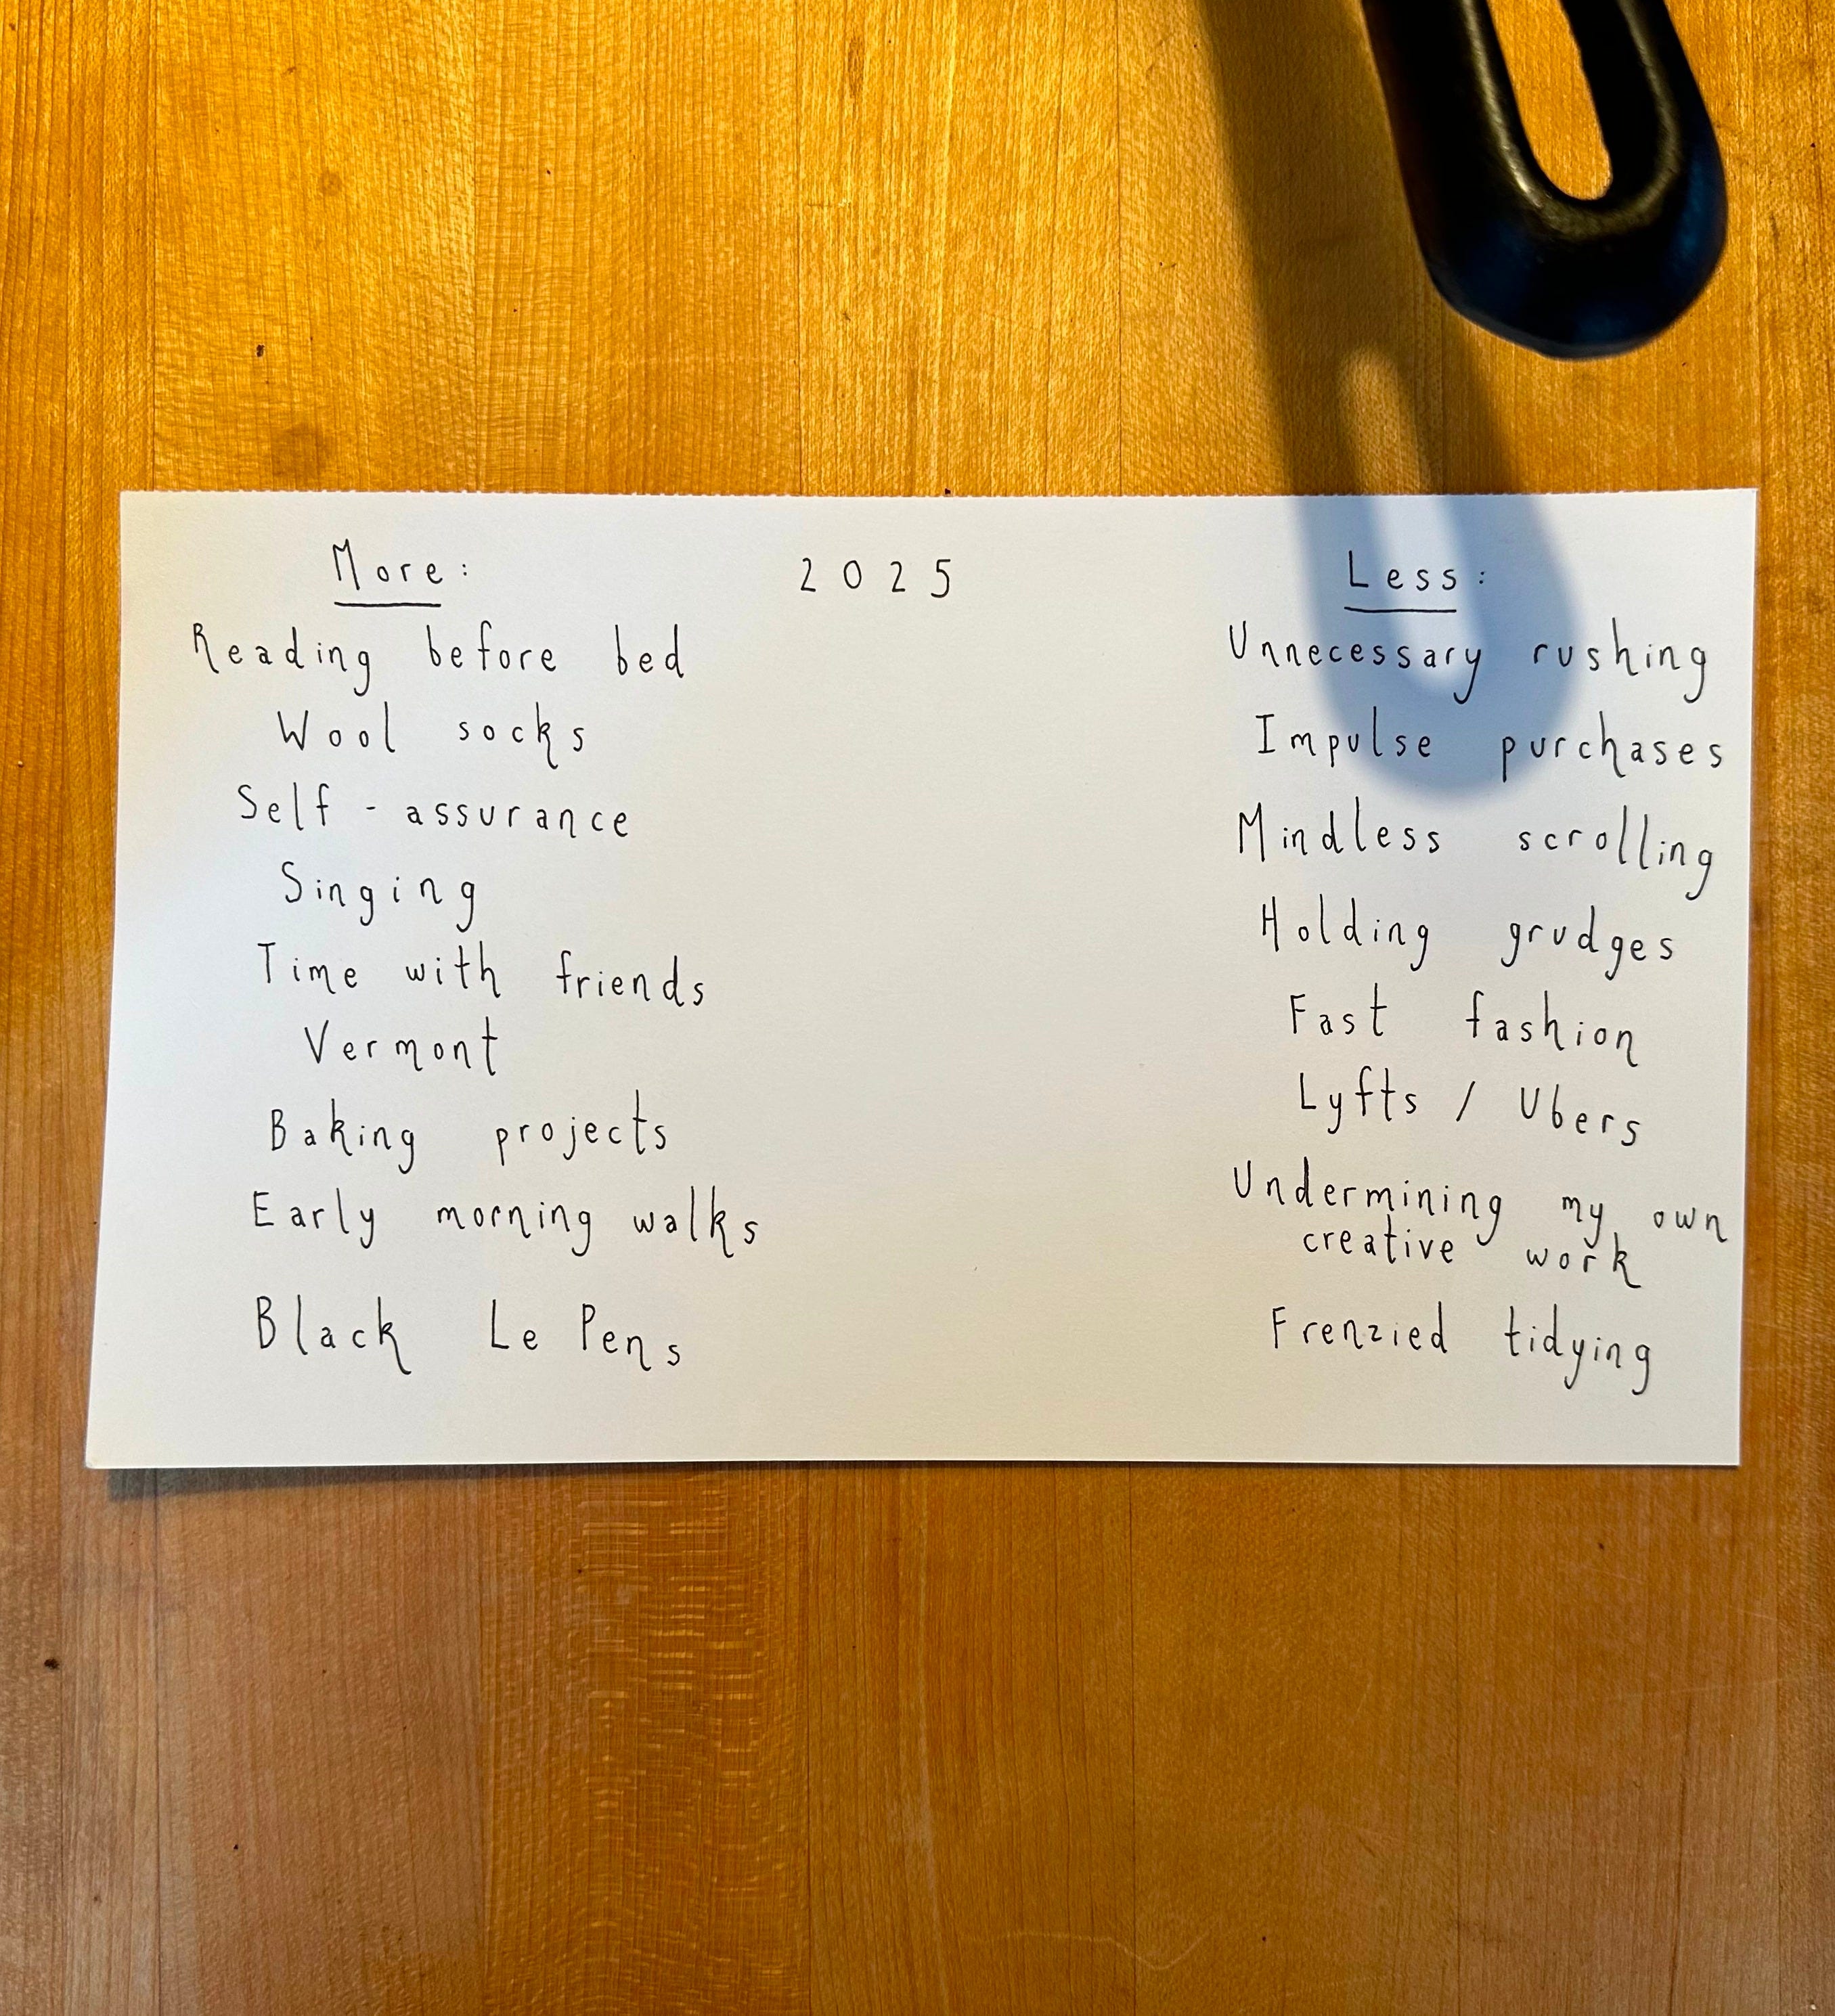 More:
2025
Less:
Reading before bed
Wool socks
Self-assurance
Singing
Time with friends
Vermont
Baking projects
Early morning walks
Black Le Pens
Unnecessary rushing
Impulse purchases
Mindless scrolling
Holding grudges
Fast fashion
Lyfts / Ubers
Undermining my own
creative work
Frenzied tidying